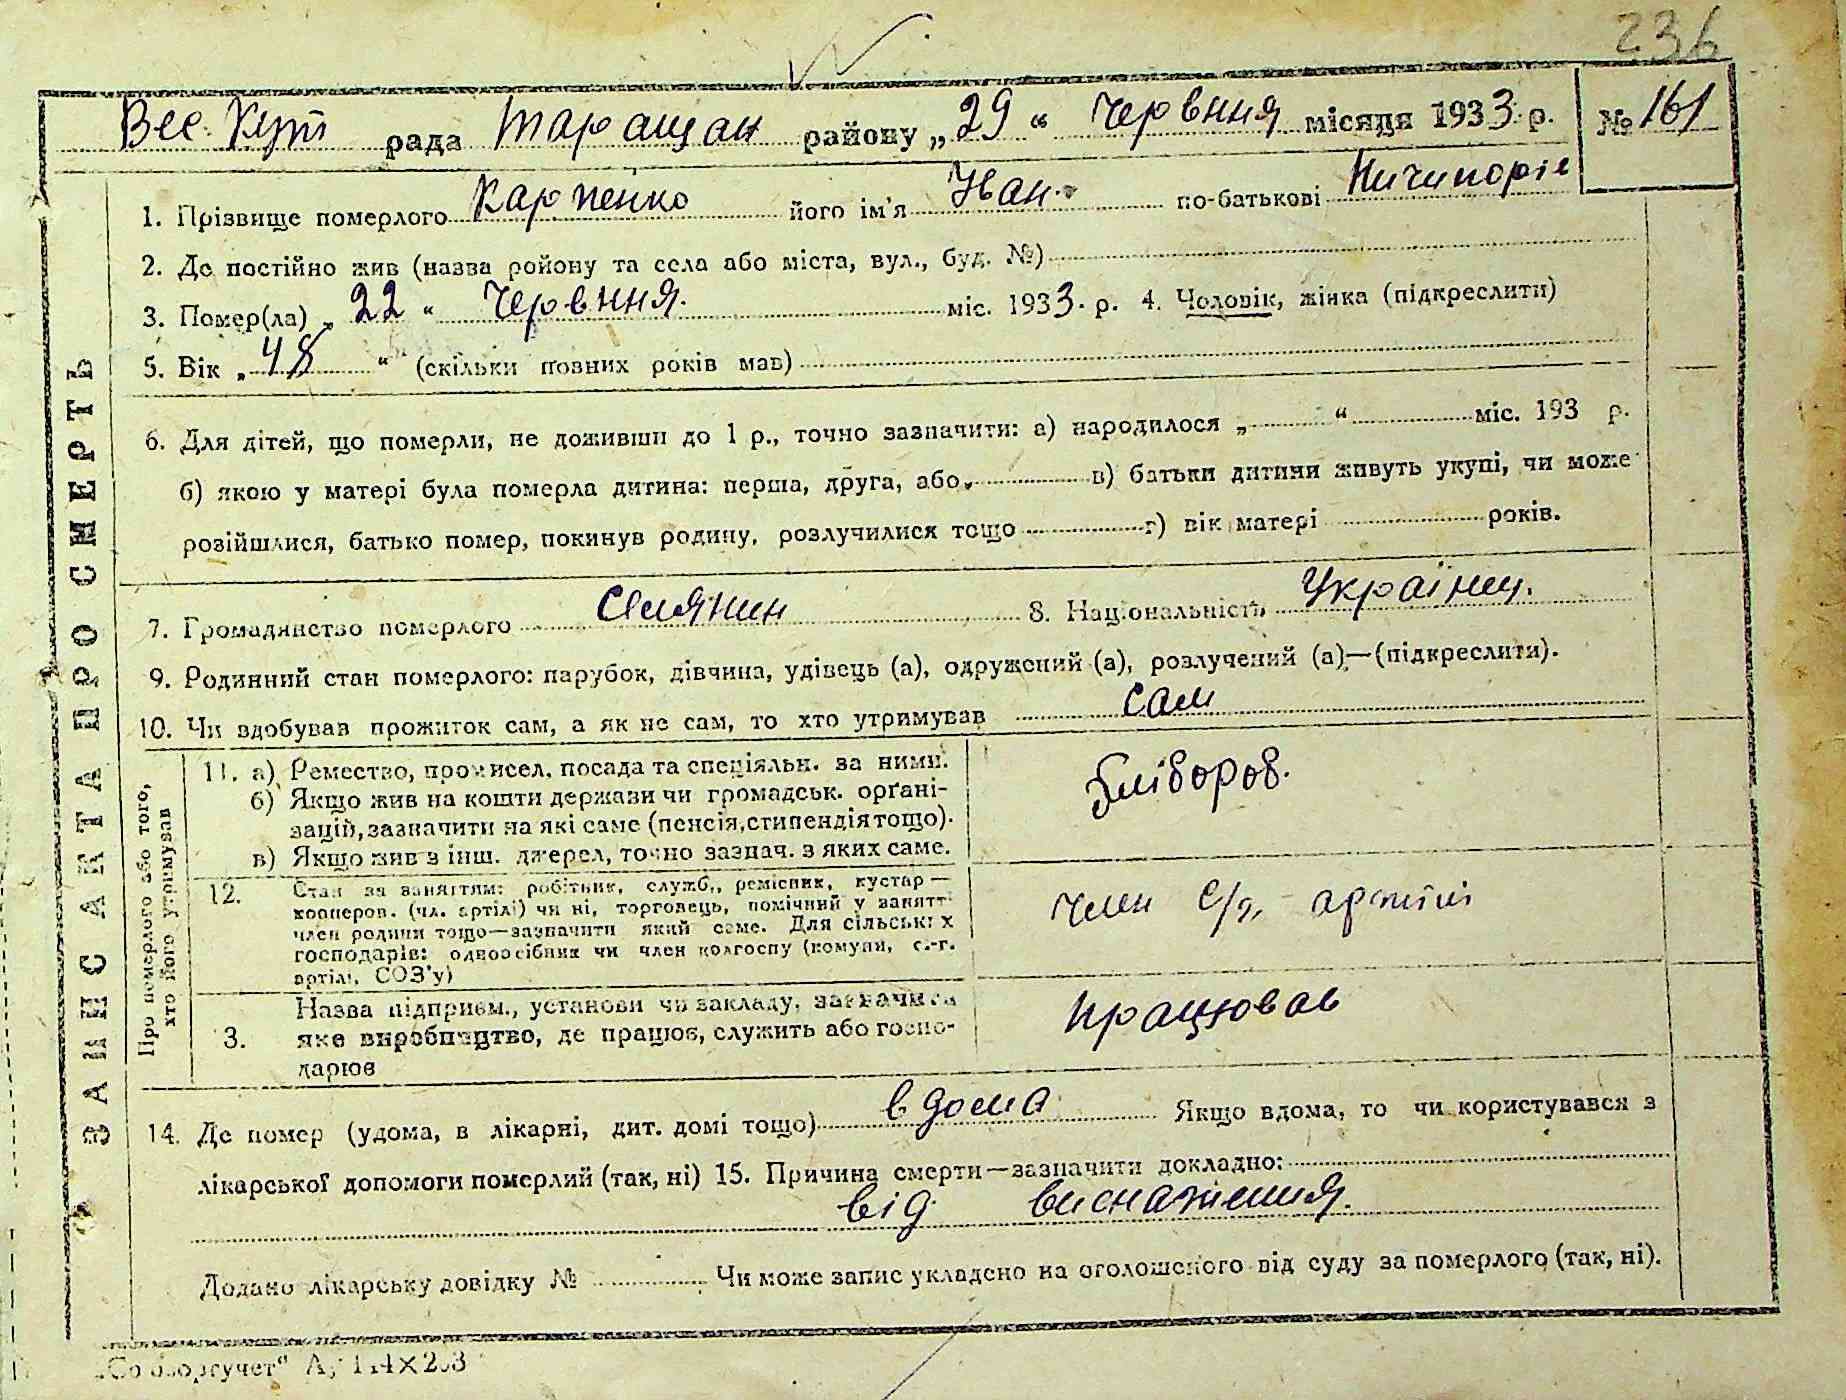 236
Вес. Кут рада Таращан району „29“ Червння місяця 1933 р. № 161
1. Прізвище померлого Карпенко його ім'я Іван по-батькові Ничипорів
2. Де постійно жив (назва ройону та села або міста, вул., буд. №)
3. Помер(ла) „22“ Червння міс. 1933 р. 4. Чоловік, жінка (підкреслити)
5. Вік „48“ (скільки повних років мав)
6. Для дітей, що померли, не доживши до 1 р., точно зазначити: а) народилося „ “ міс. 193 р.
б) якою у матері була померла дитина: перша, друга, або в) батьки дитини живуть укупі, чи може
розійшлися, батько помер, покинув родину, розлучилися тощо г) вік матері років.
7. Громадянство померлого Селянин 8. Національність Українец.
9. Родинний стан померлого: парубок, дівчина, удівець (а), одружений (а), розлучений (а)—(підкреслити).
10. Чи здобував прожиток сам, а як не сам, то хто утримував сам
ЗАПИС АКТА ПРО СМЕРТЬ
Про померлого або того,
хто його утримував
11. а) Ремество, промисел, посада та спеціяльн. за ними.
б) Якщо жив на кошти держави чи громадськ. орґані-
зацій, зазначити на які саме (пенсія, стипендія тощо).
в) Якщо жив з інш. джерел, точно зазнач. з яких саме.
хліборов.
12. Стан за заняттям: робітник, служб., ремісник, кустар—
кооперов. (чл. артілі) чи ні, торговець, помічний у занятті
член родини тощо—зазначити який саме. Для сільських
господарів: одноосібник чи член колгоспу (комуни, с.-г.
артілі, СОЗ'у)
Член с/г, артілі
3. Назва підприєм., установи чи закладу, зазначити
яке виробництво, де працює, служить або госпо-
дарює
працював
14. Де помер (удома, в лікарні, дит. домі тощо) вдома Якщо вдома, то чи користувався з
лікарської допомоги померлий (так, ні) 15. Причина смерти—зазначити докладно:
від виснаження.
Додано лікарську довідку № Чи може запис укладено на оголошеного від суду за померлого (так, ні).